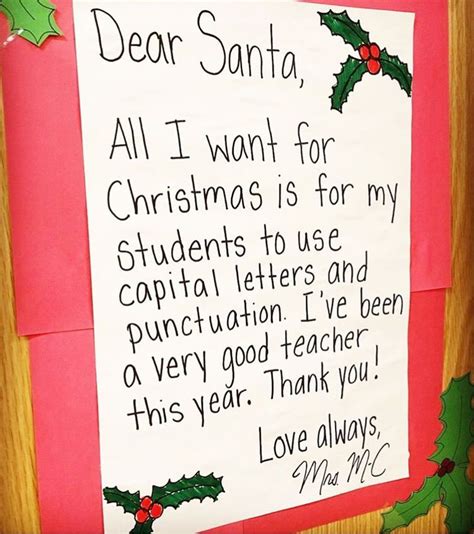 Dear Santa,
All I want for
Christmas is for my
students to use
capital letters and
punctuation. I've been
a very good teacher
this year. Thank you!
Love always,
Mrs. M-C